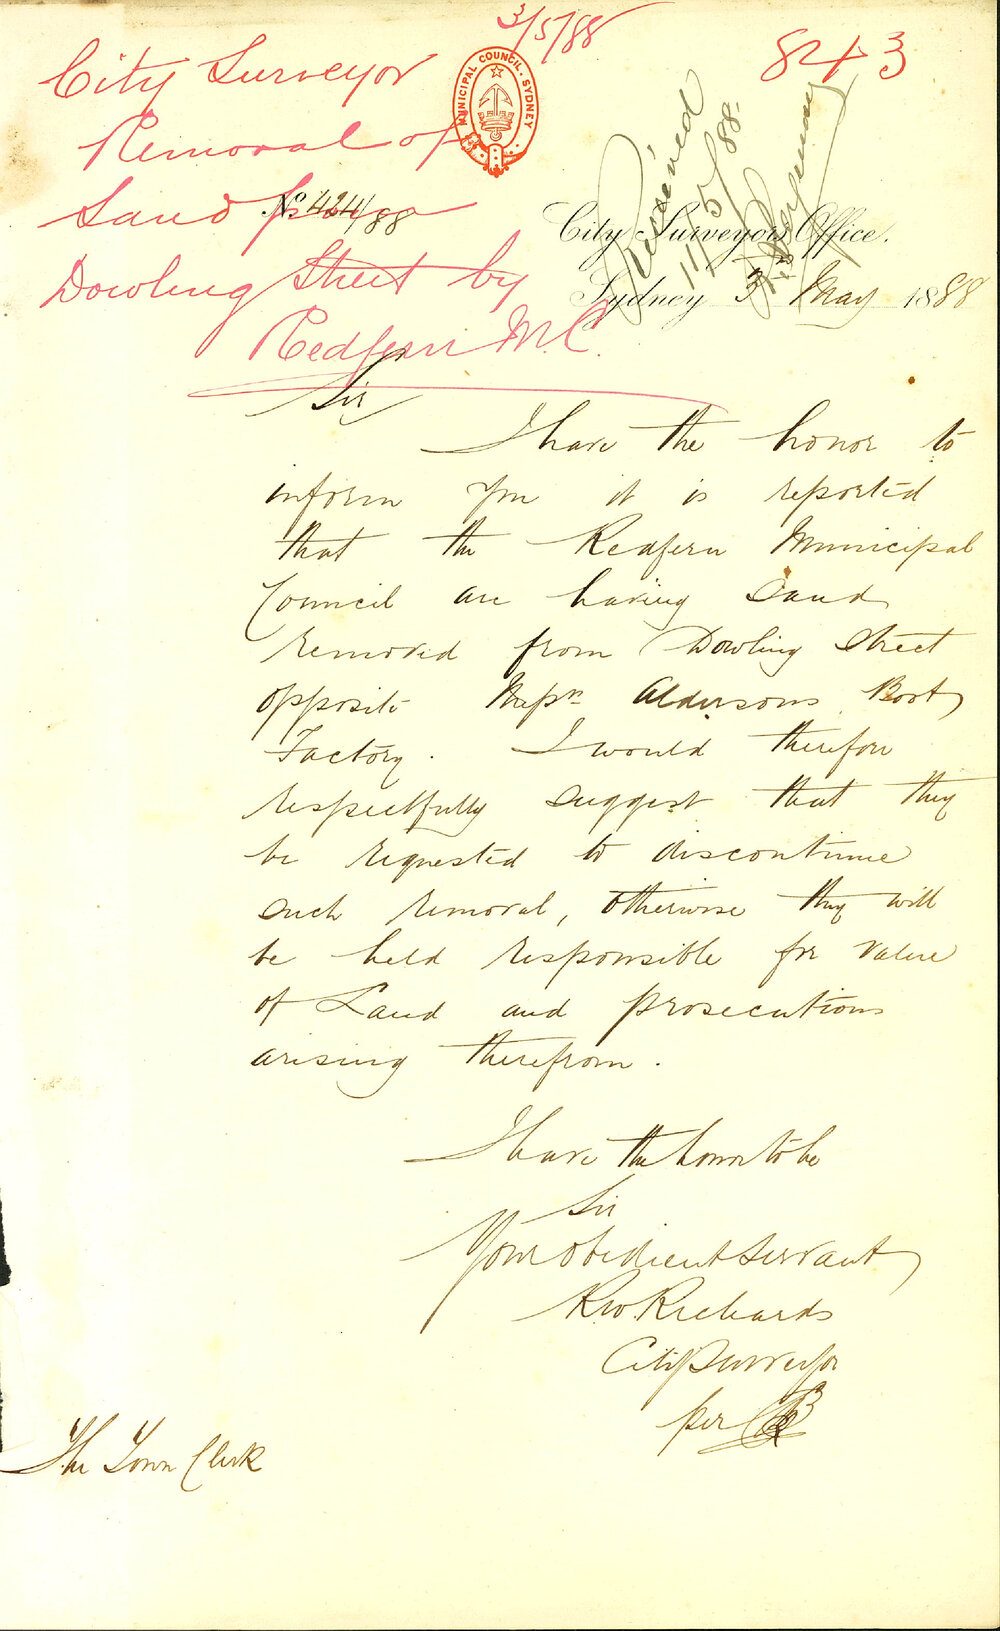 3/5/88
843
City Surveyor
Removal of
Sand from
Dowling Street by
Redfern M.C.
MUNICIPAL COUNCIL. SYDNEY
No. 424/88
Received
11/5/88.
City Surveyors Office.
Sydney 3 May 1888
Sir
I have the honor to
inform you it is reported
that the Redfern Municipal
Council are having Sand
removed from Dowling Street
opposite Aldersons Boot
Factory. I would therefore
respectfully suggest that they
be requested to discontinue
such removal, otherwise they will
be held responsible for value
of Sand and prosecutions
arising therefrom.
I have the honor to be
Sir
Your obedient Servant
R.W. Richards
City Surveyor
per
The Town Clerk